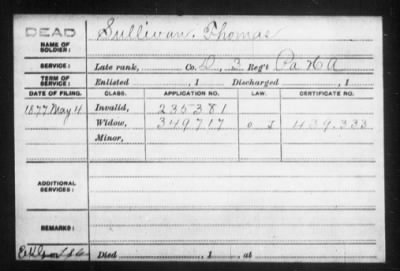 DEAD
NAME OF SOLDIER: Sullivan, Thomas
SERVICE: Late rank, Co. D, 3 Reg't Pa H A
TERM OF SERVICE: Enlisted , 1 Discharged , 1
DATE OF FILING. CLASS. APPLICATION NO. LAW. CERTIFICATE NO.
1877 May 4 Invalid, 235381
Widow, 349717 439.333
Minor,
ADDITIONAL SERVICES:
REMARKS:
Died , 1 , at